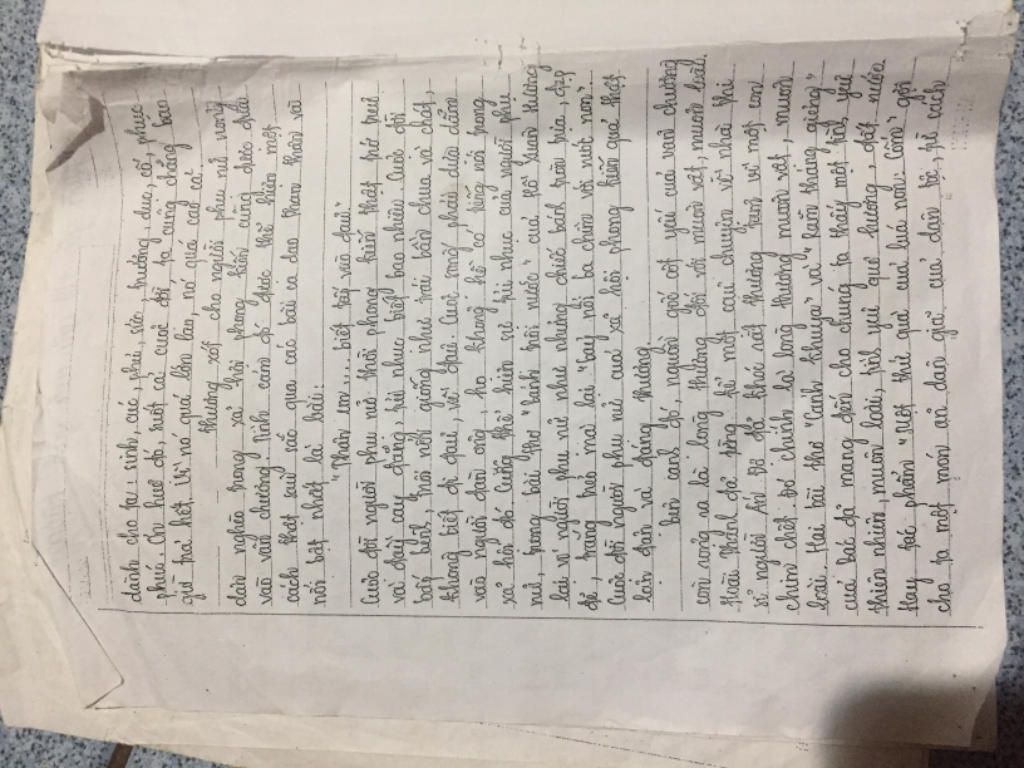 dành cho ta: sinh, cúc, phúi, súc, trưởng, dục, cố, phục
phúc. Chỉ hươ đó, nuôi cả cuộc đời, ta cũng chẳng bao
giờ trả hết. Vì nó quá lớn lao, nó quá cao cả.
Thương xót cho người phụ nữ nông
dân nghèo trong xã hội phong kiến cũng được đưa
vào văn chương. Tình cảm đó được thể hiện một
cách thật sâu sắc qua các bài ca dao than thân và
nổi bật nhất là bài:
"Thân em.... biết tấp vào đâu."
Cuộc đời người phụ nữ thời phong kiến thật trớ trêu
và đầy cay đắng, tủi nhục biết bao nhiêu. Cuộc đời
bấp bênh, trôi nổi giống như trái bần chua và chát,
không biết đi đâu, về đâu. Cuộc sống phải dựa dẫm
vào người đàn ông, họ không hề có tiếng nói trong
xã hội đó. Cũng thể hiện sự tủi nhục của người phụ
nữ, trong bài thơ "bánh trôi nước" của Hồ Xuân Hương
lại ví người phụ nữ như những chiếc bánh tròn trịa, đẹp
đẽ, trắng trẻo mà lại "bảy nổi ba chìm với nước non".
Cuộc đời người phụ nữ của xã hội phong kiến quả thật
lận đận và đáng thương.
bên cạnh đó, nguồn gốc cốt yếu của văn chương
còn rộng ra là lòng thương đối với muôn vật, muôn loài.
Hoài Thanh đã từng kể một câu chuyện về nhà thi
sĩ người Ấn Độ đã khóc nức thương trước một con
chim chết. Đó chính là lòng thương muôn vật, muôn
loài. Hai bài thơ "Cảnh khuya" và "Rằm tháng giêng"
của bác đã mang đến cho chúng ta thấy một tình yêu
thiên nhiên, muôn loài, tình yêu quê hương, đất nước.
Hay tác phẩm "Một thứ quà của lúa non: Cốm" gợi
cho ta một món ăn dân giã của dân tộc, từ cách